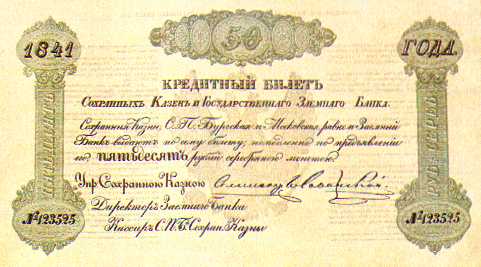 1841
50
ГОДА.
КРЕДИТНЫЙ БИЛЕТЪ
СОХРАННЫХЪ КАЗЕНЪ И ГОСУДАРСТВЕННАГО ЗАЕМНАГО БАНКА.
Сохранныя Казны, С.П.Бургская и Московская равно и Заемный
Банкъ выдаютъ по сему билету, немедленно по предъявленіи
его ПЯТЬДЕСЯТЪ рублей серебряною монетою.
Упр. Сохранною Казною
Директоръ Заемнаго Банка
Кассиръ С.П.Б. Сохран. Казны
№ 123525
№ 123525